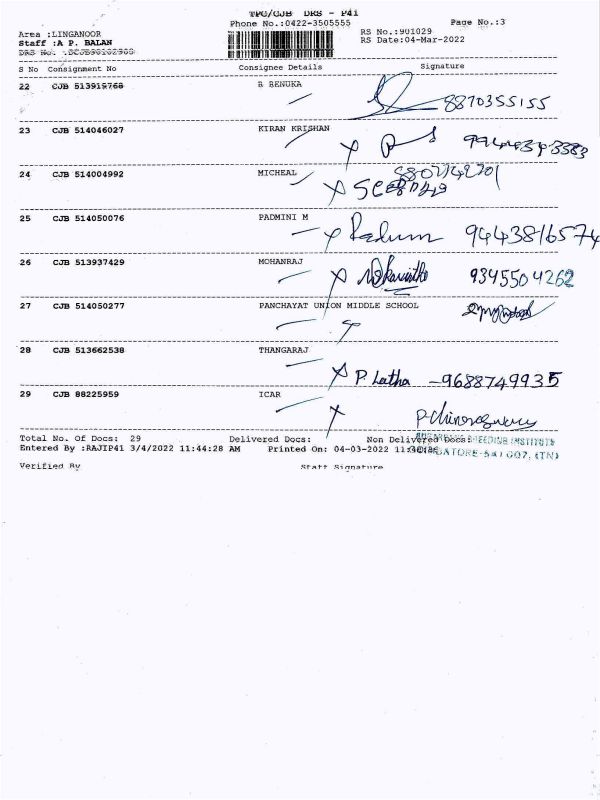 TPC/CJB DRS - P41
Phone No.:0422-3505555 Page No.:3
Area :LINGANOOR RS No.:901029
Staff :A P. BALAN RS Date:04-Mar-2022
S No Consignment No Consignee Details Signature
22 CJB 513919768 R BENUKA 8870355155
23 CJB 514046027 KIRAN KRISHAN
24 CJB 514004992 MICHEAL
25 CJB 514050076 PADMINI M 9443816574
26 CJB 513937429 MOHANRAJ 9345504262
27 CJB 514050277 PANCHAYAT UNION MIDDLE SCHOOL
28 CJB 513662538 THANGARAJ P. Latha - 9688749935
29 CJB 88225959 ICAR
Total No. Of Docs: 29 Delivered Docs: Non Delivered Docs:
BREEDING INSTITUTE
Entered By :RAJIP41 3/4/2022 11:44:28 AM Printed On: 04-03-2022
COIMBATORE-641 007. (TN)
Verified By Staff Signature